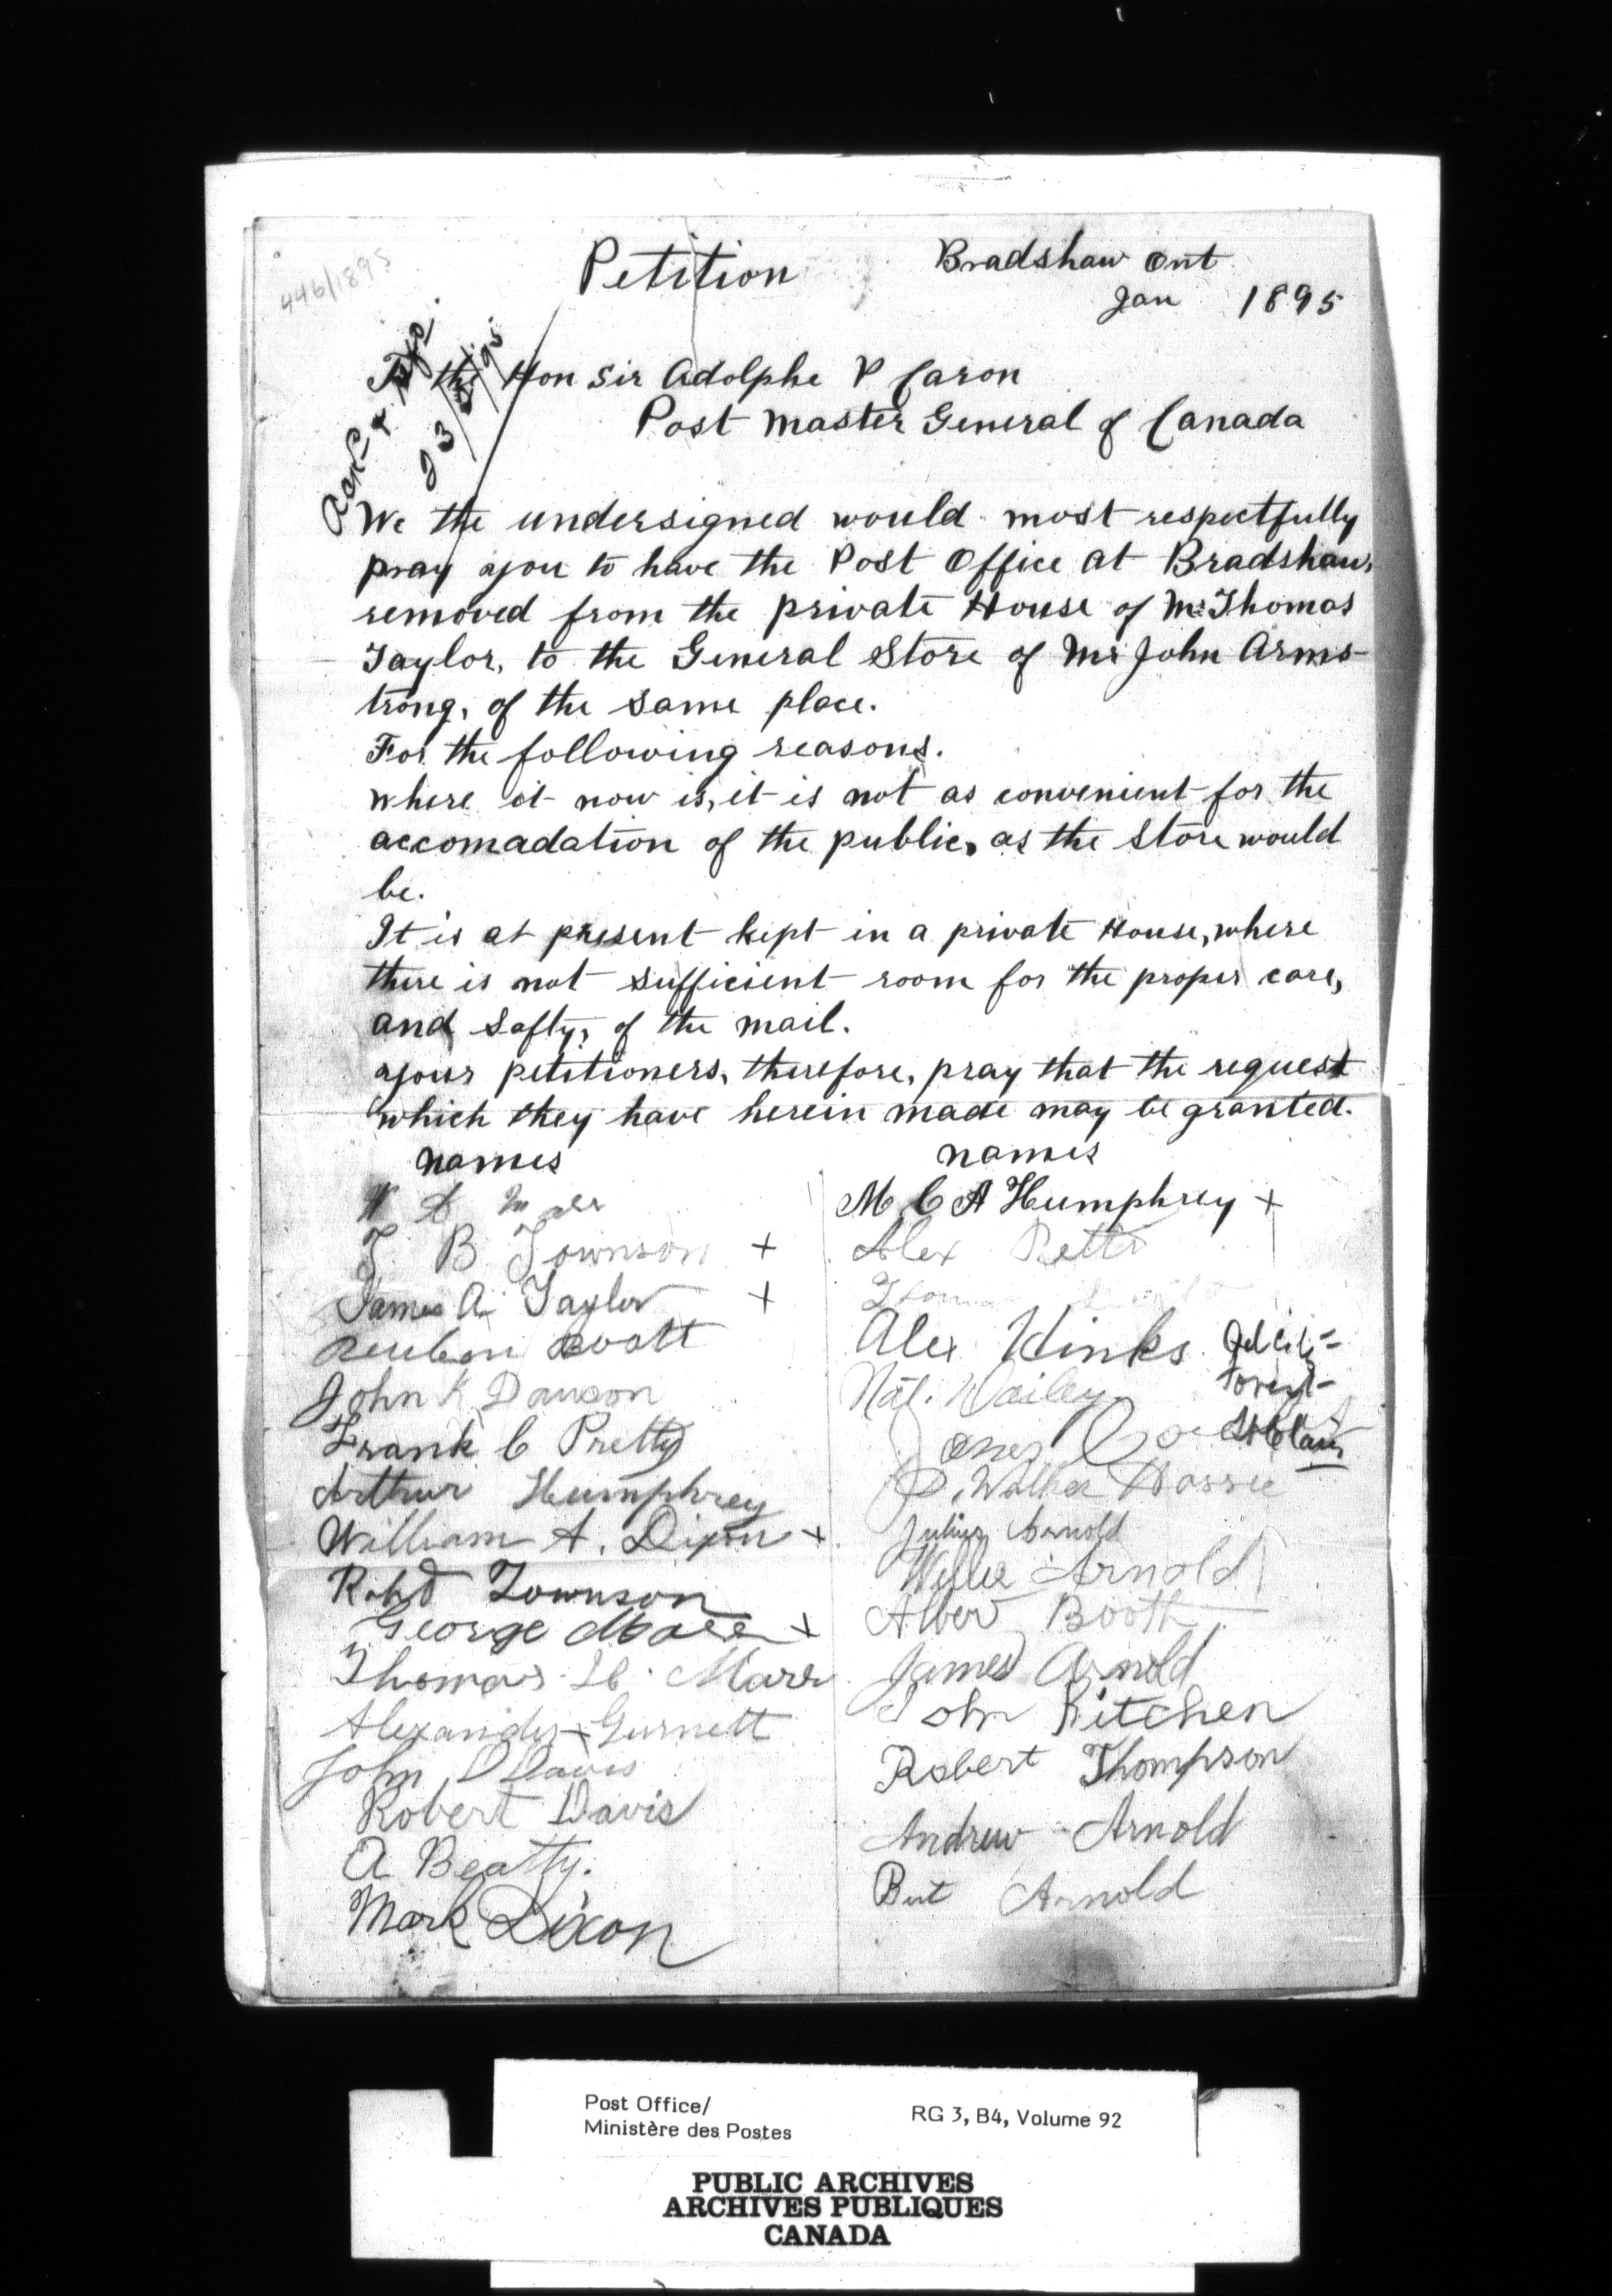 446/1895
Petition
Bradshaw Ont
Jan 1895
To the Hon Sir Adolphe P Caron
Post Master General of Canada
23/1/95
We the undersigned would most respectfully
pray you to have the Post Office at Bradshaw,
removed from the private House of Mr Thomas
Taylor, to the General Store of Mr John Arms-
trong, of the same place.
For the following reasons.
where it now is, it is not as convenient for the
accomadation of the public, as the store would
be.
It is at present kept in a private House, where
there is not sufficient room for the proper care,
and safty, of the mail.
your petitioners, therefore, pray that the request
which they have herein made may be granted.
names
W
T B Townson +
James A. Taylor +
Reuben Boott
John K Dawson
Frank C Pretty
Arthur Humphrey
William A. Dixon +
Robd Townson
George +
Thomas Marr
Alexander Gurnett
John D Davis
Robert Davis
A Beatty.
Mark Dixon
names
M C A Humphrey +
Alex
Alex Hinks
Nat. Wailey
Walker
Julius Arnold
Willie Arnold
Alber Booth
James Arnold
John Kitchen
Robert Thompson
Andrew Arnold
But Arnold
Post Office/
Ministère des Postes
RG 3, B4, Volume 92
PUBLIC ARCHIVES
ARCHIVES PUBLIQUES
CANADA